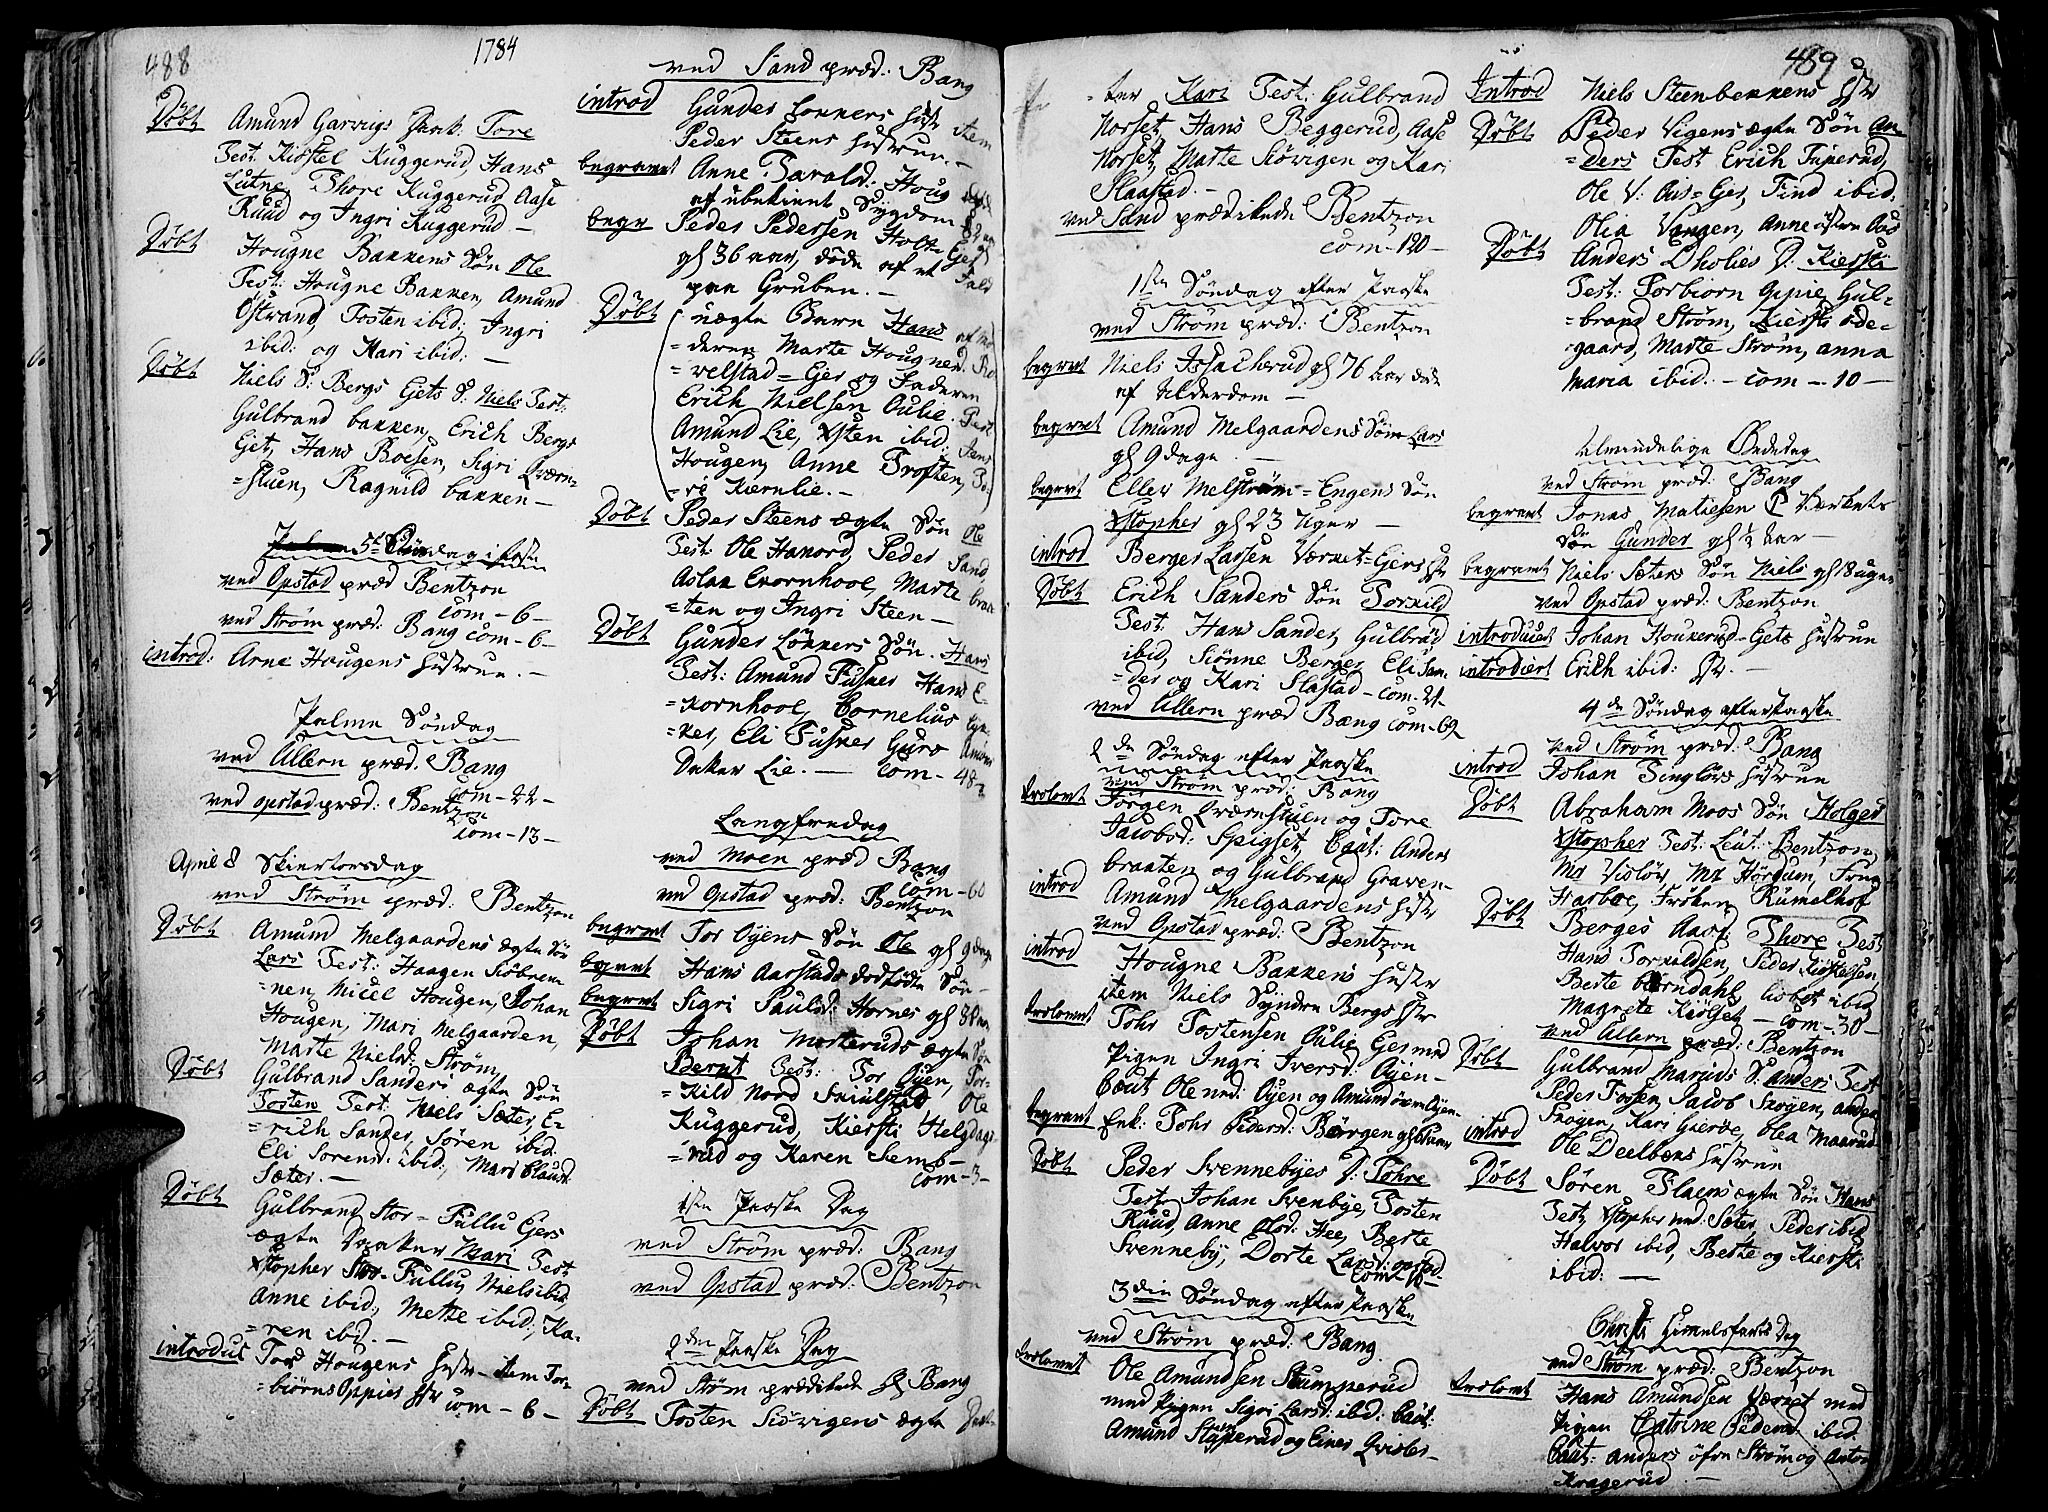 488
1784
Döbt Amund Garvigs Tore
Test. Kiöstel Kuggerud, Hans
Lutne, Thore Kuggerud, Aase
Ruud og Ingri Kuggerud —
Döbt Hougne Bakkens Sön Ole
Test: Hougne Bakken, Amund
Ostrand, Tosten ibid: Ingri
ibid: og Kari ibid: —
Döbt Niels S: Bergs Gets S: Niels Test:
Gulbrand bakken, Erich Bergs
Get, Hans Boesen, Sigri Qværn-
=stuen, Ragnild bakken —
5te Söndag i faste
ved Opstad præd Bentzon
com — 6 —
ved Ström præd: Bang com — 6 —
introd: Arne Hougens Hustrue. —
Palme Söndag
ved Ullern præd. Bang
com — 22 —
ved opstad præd: Bentzon
com — 13 —
April 8 Skiertorsdag
ved Ström præd: Bentzon
Döbt Amund Melgaardens ægte Sön
Lars Test: Haagen Siöbnem
nen, Micel Hougen, Johan
Hougen, Mari Melgaarden,
Marte Nielsd: Ström
Döbt Gulbrand Sanders ægte Sön
Tosten Test: Niels Sæter, E-
=rich Sander, Sören ibid.
Eli Sorensd: ibid, Mari Clausd
Sæter. —
Döbt Gulbrand Stor = Fullu Gers
ægte Daater Mari Test
Xstopher Stor-Fullu, Niels ibid,
Anne ibid, Mette ibid, Ka-
=ren ibid. —
introdus Tord Hougens Hustr — item Tor-
=biörns Oppies Hstr com — 6 —
ved Sand præd: Bang
introd Gunder Lonners Hust item
Peder Steens Hustrue. —
begravet Anne Tarald: Houg
af ubekient Sygdom
begr Peder Pedersen Holt = Ger
gl 36 aar, döde af et Fald
paa Gruben. —
Döbt uægte Barn Hans af Mo
=deren Marte Hougned. Tro
=velstad = Ger og Faderen
Erich Nielsen Oulie. Test
Amund Lie, Xsten ibid: Jens
Hougen, Anne Trosten, To
=re Kiernlie. —
Döbt Peder Steens ægte Sön Ole
Test: Ole Hanord, Peder Sand,
Aslak Ekornhool, Marte braa
=ten og Ingri Steen —
Döbt Gunder Lönners Sön. Hans
Test: Amund Fusker Hans E-
=kornhool, Cornelius
=ker, Eli Fusker Guro Amund
Daker Lie. — com — 48 —
Langfredag
ved Moen præd Bang
com — 60
ved Opstad præd: Bentzon
begravet Tor Oyens Sön Ole gl 9 dage
begravet Hans Aarstads dodfödte Sön —
begravet Sigri Paulsd: Hornes gl 8
Döbt Johan Mosteruds ægte Sön
Bernt Test: Tor Oyen, Tor-
=kild Nord Ole
Kuggerud, Kiersti Helgdags
=rud og Karen Semb —
com — 3 —
1ste Paaske Dag
ved Ström præd: Bang
ved Opstad præd: Bentzon
2den Paaske Dag
ved Ström prædikede Bang
Döbt Tosten Siövigens ægte Daat-
489
=ter Kari Test: Gulbrand
Norset, Hans Beggerud, Aase
Norset, Marte Siövigen og Kari
Slaastad. —
ved Sand prædikede Bentzon
com — 120 —
1ste Söndag efter Paaske
ved Ström præd: Bentzon
begravet Niels Issacherud gl 76 aar döde
af Alderdom —
begravet Amund Melgaardens Sön Lars
gl 9 dage. —
begravet Eller Melström = Engens Sön
Xstopher gl 23 Uger —
introd Berger Larsen Værnet = Gers Hstr
Döbt Erich Sanders Sön Torkild
Test. Hans Sander, Gulbrād
ibid, Siönne Berger, Eli San-
=der og Kari Slastad — com — 21 —
ved Ullern præd Bang com — 62
2de Söndag efter Paaske
ved Ström præd: Bang
trolovet Jörgen Qværnstuen og Tore
Jacobsd: Spigset, Caut: Anders
braaten og Gulbrand Graven —
introd Amund Melgaardens Hustr
ved Opstad præd: Bentzon
introd Hougne Bakkens Hustr
item Niels Syndre Bergs Hstr
trolovet Tohr Tostensen Aulie Ger med
Pigen Ingri Iversd: Oyen —
Caut Ole ned: Oyen og Amund övre Oyen —
begravet Enk: Tohr Pedersd: Börgen
Döbt Peder Svennebyes D: Tohre
Test. Johan Svenbye, Tosten
Ruud, Anne Olsd: Hee, Berte
Svenneby, Dorte Larsd: opstad.
3die Söndag efter Paaske
ved Ström præd: Bang
trolovet Ole Amundsen Stumperud
med Pigen Sigri Larsd: ibid: Caut:
Amund Stumperud og Einer Qvisler —
Introd Niels Steenbekkens Hstr
Döbt Peder Vigens ægte Sön An-
=ders Test Erich Tuperud,
Ole V: Aas = Ger, Find ibid.
Olia Vangen, Anne östre Aas
Döbt Anders Dholies D: Kiersti
Test: Torbiorn Oppie, Gul-
=brand Ström, Kiersti öde-
=gaard, Marte Ström, Anna
Maria ibid. — com — 10 —
Almindelige Bededag
ved Ström præd: Bang
begravet Jonas Matiesen Verkets
Sön Gunder gl ½ aar —
begravet Niels Sæters Sön Niels gl 18 uger
ved Opstad præd: Bentzon
introduceret Johan Houkerud = Gets Hustrue
introduceret Erich ibid: Hstr. —
4de Söndag efter Paaske
ved Ström præd: Bang
introd Johan Tinglörs Hustrue
Döbt Abraham Moos Sön Holged
Xstopher Test: Leut: Bentzon,
Mr Violöv, Mr Hördum, Frue
Harboe, Fröken Rumelhof
Döbt Berges Aas Thore Test
Hans Torkildsen, Peder Kiöstelsen,
Berte börndahl, Lisbet ibid
Magrete Kiölset — com — 30 —
ved Ullern præd: Bentzon
Döbt Gulbrand Maruds S: Anders Test
Peder Fossen, Jacob Skogen, Anders
Skogen, Kari Gierde, Olea Maarud
introd Ole Deelbens Hustrue
Döbt Sören Flaens ægte Sön Hans
Test, Xstopher ned: Sæter, Peder ibid
Halvor ibid, Berte og Kiersti
ibid: —
Christi Himelfarts Dag
ved Ström præd: Bentzon
trolovet Hans Amundsen Værnet med
Pigen Catrine Pedersd: ibid.
Caut: Anders öfre Ström og Anton
Kragerud —